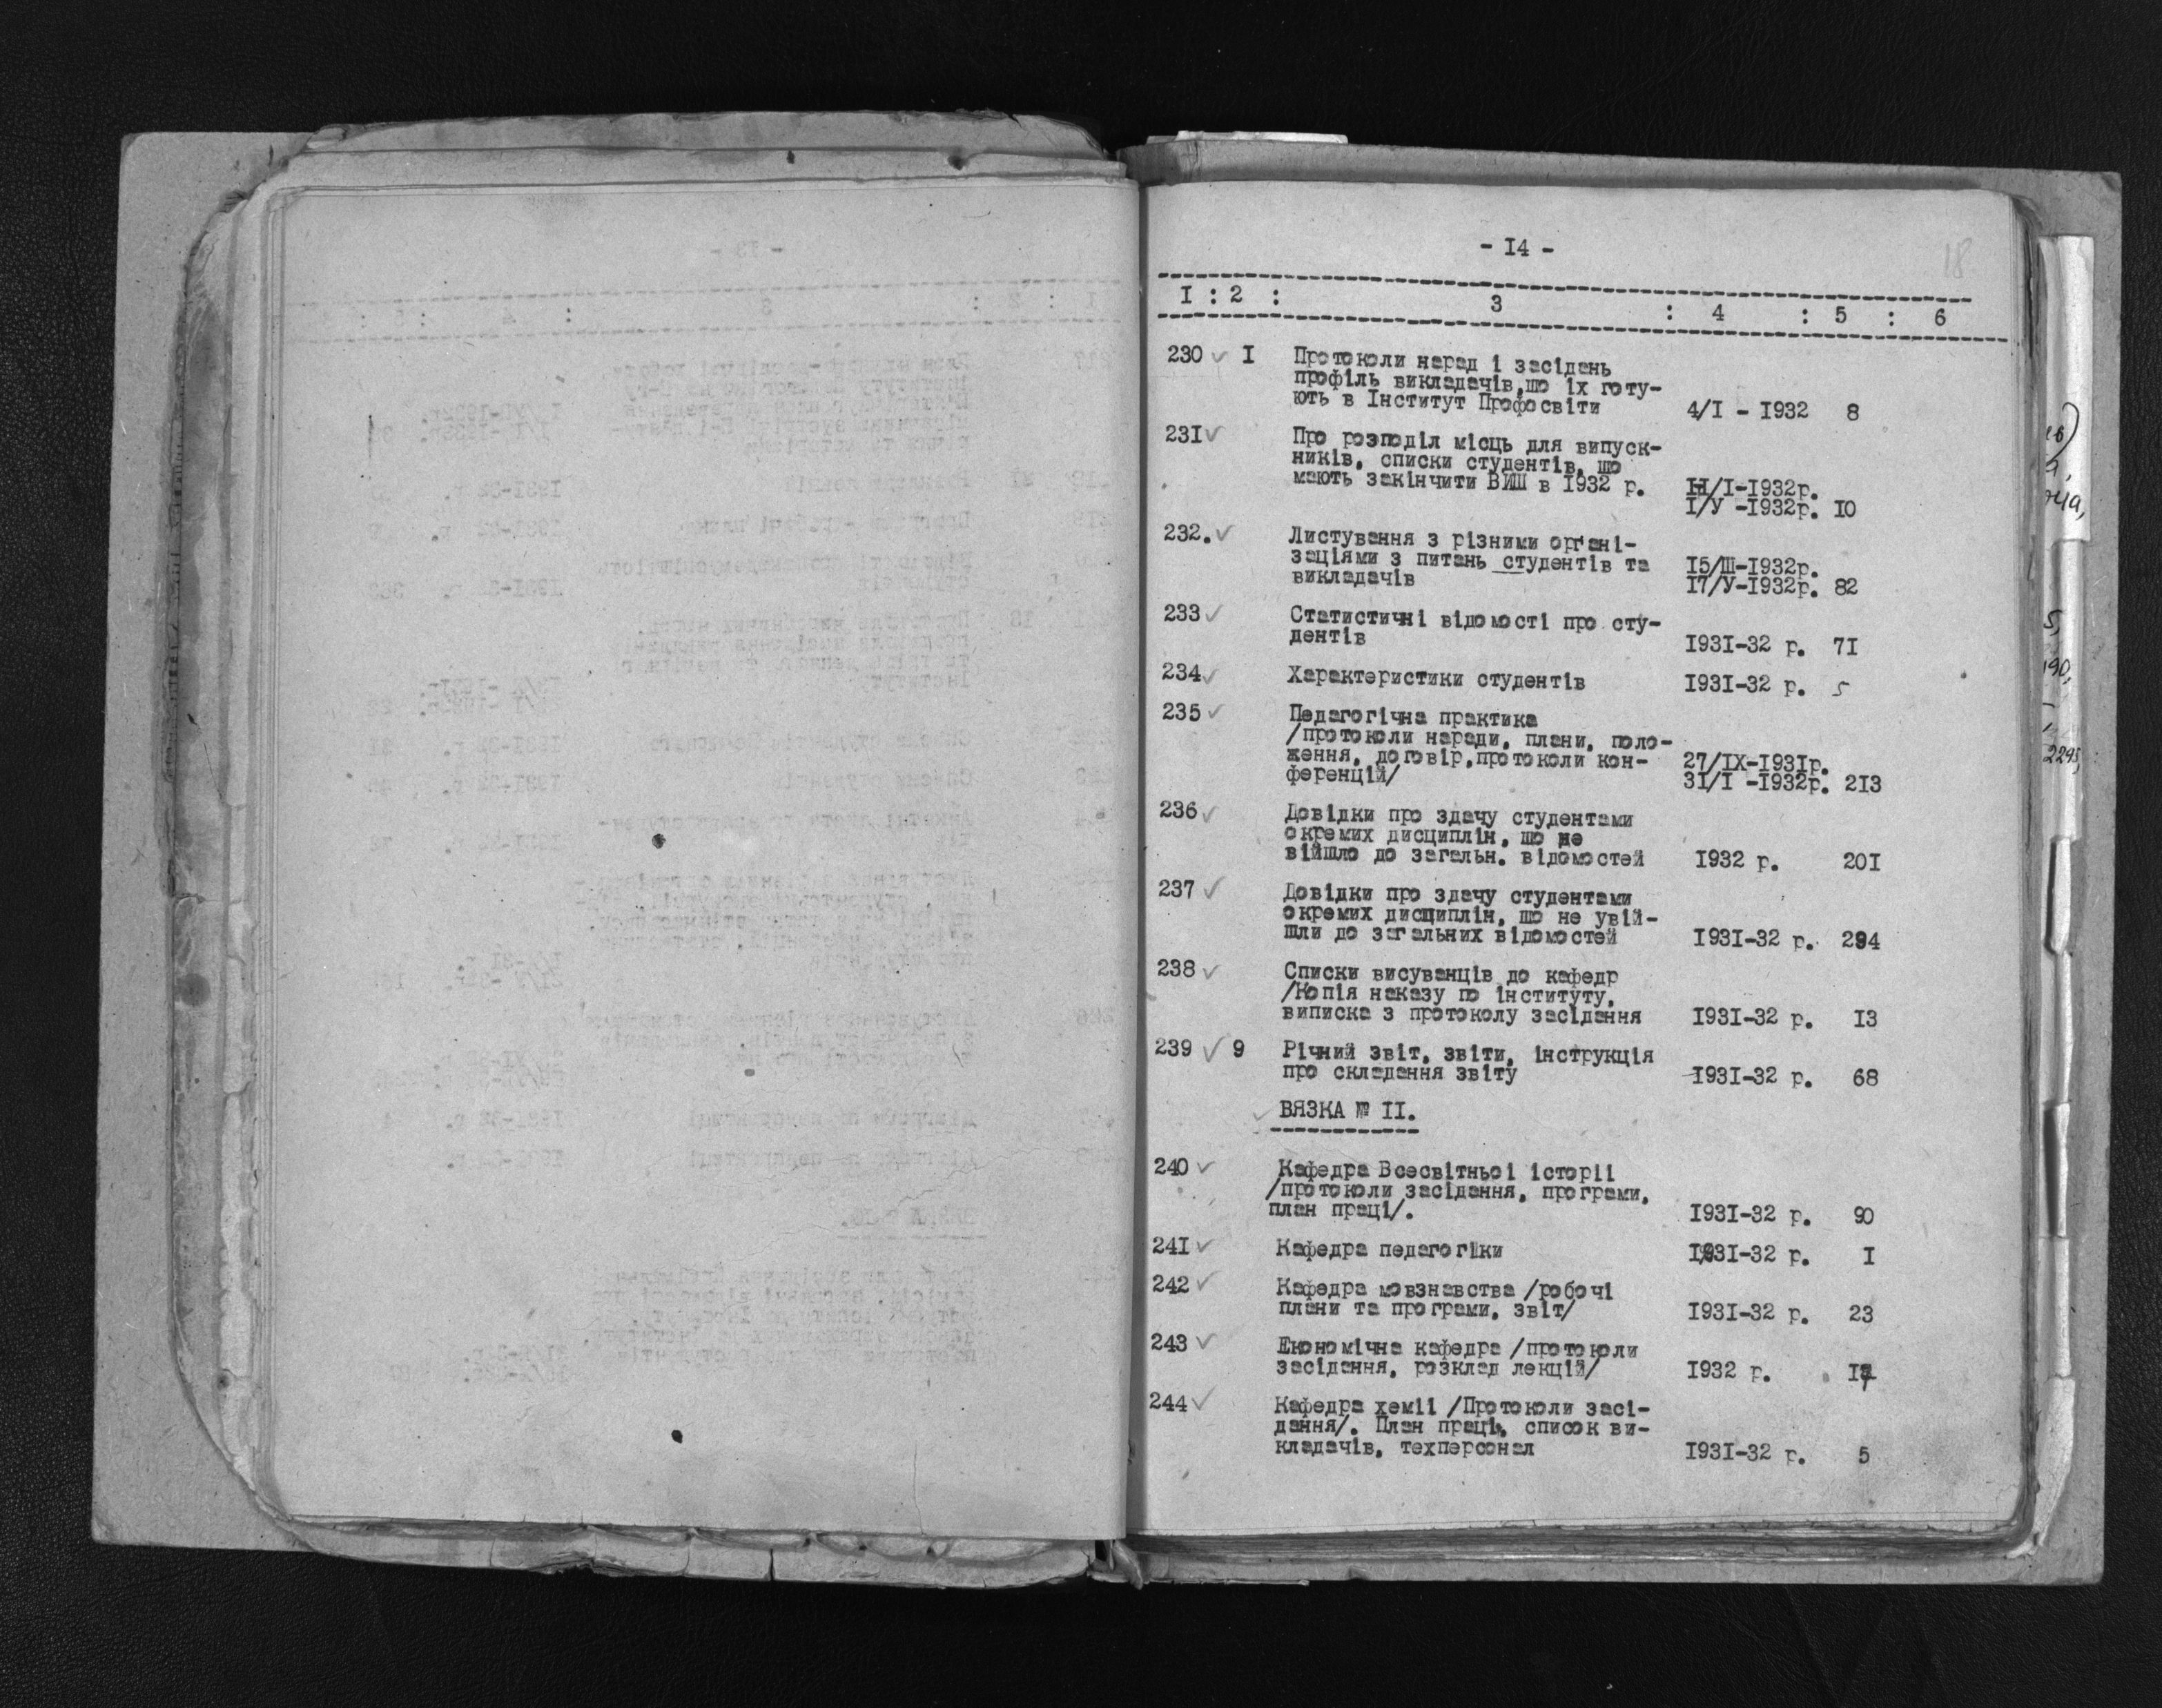 - I4 -
18
I : 2 : 3 : 4 : 5 : 6
230 ✓ I Протоколи нарад і засідань
профіль викладачів,що їх готу-
ють в Інститут Профосвіти 4/I - I932 8
23I ✓ Про розподіл місць для випуск-
ників, списки студентів, що
мають закінчити ВИШ в I932 р. II/I-I932р.
I/У -I932р. I0
232. ✓ Листування з різними органі-
заціями з питань студентів та I5/Ш-I932р.
викладачів I7/У-I932р. 82
233 ✓ Статистичні відомості про сту-
дентів I93I-32 р. 7I
234 ✓ Характеристики студентів I93I-32 р. 5
235 ✓ Педагогічна практика
/протоколи наради, плани, поло-
ження, договір,протоколи кон- 27/IX-I93Iр.
ференцій/ 3I/I -I932р. 2I3
236 ✓ Довідки про здачу студентами
окремих дисциплін, що не
війшло до загальн. відомостей I932 р. 20I
237 ✓ Довідки про здачу студентами
окремих дисциплін, що не увій-
шли до загальних відомостей I93I-32 р. 294
238 ✓ Списки висуванців до кафедр
/Копія наказу по інституту,
виписка з протоколу засідання I93I-32 р. I3
239 ✓ 9 Річний звіт, звіти, інструкція
про складання звіту I93I-32 р. 68
✓ ВЯЗКА № II.
240 ✓ Кафедра Всесвітньоі історіі
/протоколи засідання, програми,
план праці/. I93I-32 р. 90
24I ✓ Кафедра педагогіки I93I-32 р. I
242 ✓ Кафедра мовзнавства /робочі
плани та програми, звіт/ I93I-32 р. 23
243 ✓ Економічна кафедра /протоколи
засідання, розклад лекцій/ I932 р. I7
244 ✓ Кафедра хеміі /Протоколи засі-
дання/. План праці, список ви-
кладачів, техперсонал I93I-32 р. 5